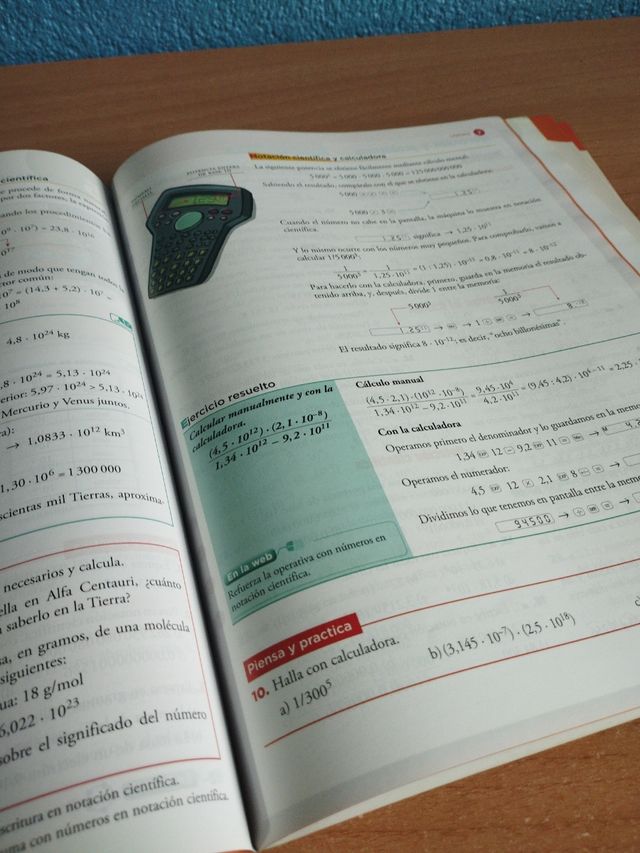 científica
procede de forma
por dos factores; la
ando los procedimientos
· 10⁷) = 23,8 · 10¹⁶
10¹⁷
de modo que tengan todos
ctor común:
10⁷ = (14,3 + 5,2) · 10⁷ =
10⁸
4,8 · 10²⁴ kg
,8 · 10²⁴ = 5,13 · 10²⁴
erior: 5,97 · 10²⁴ > 5,13 · 10²⁴
Mercurio y Venus juntos.
ra):
→ 1,0833 · 10¹² km³
1,30 · 10⁶ = 1 300 000
scientas mil Tierras, aproxima-
necesarios y calcula.
ella en Alfa Centauri, ¿cuánto
saberlo en la Tierra?
sa, en gramos, de una molécula
siguientes:
ua: 18 g/mol
6,022 · 10²³
sobre el significado del número
scritura en notación científica.
ma con números en notación científica.
Notación científica y calculadora
La siguiente potencia se obtiene fácilmente mediante cálculo mental:
5 000³ = 5 000 · 5 000 · 5 000 = 125 000 000 000
Sabiendo el resultado, compáralo con el que se obtiene en la calculadora:
5 000
1.25¹¹
Cuando el número no cabe en la pantalla, la máquina lo muestra en notación
científica.
1.25¹¹ significa → 1,25 · 10¹¹
Y lo mismo ocurre con los números muy pequeños. Para comprobarlo, vamos a
calcular 1/5 000³:
1/5 000³ = 1/1,25 · 10¹¹ = (1 : 1,25) · 10⁻¹¹ = 0,8 · 10⁻¹¹ = 8 · 10⁻¹²
Para hacerlo con la calculadora, primero, guarda en la memoria el resultado ob-
tenido arriba, y, después, divide 1 entre la memoria:
5 000³ 1/5 000³
1.25¹¹ → → 1 ÷ = →
El resultado significa 8 · 10⁻¹²; es decir, "ocho billonésimas".
Ejercicio resuelto
Calcular manualmente y con la
calculadora.
(4,5 · 10¹²) · (2,1 · 10⁻⁸)
1,34 · 10¹² − 9,2 · 10¹¹
En la web
Refuerza la operativa con números en
notación científica.
Cálculo manual
(4,5 · 2,1) · (10¹² · 10⁻⁸)/1,34 · 10¹² − 9,2 · 10¹¹ = 9,45 · 10⁴/4,2 · 10¹¹ = (9,45 : 4,2) · 10⁴⁻¹¹ = 2,25 ·
Con la calculadora
Operamos primero el denominador y lo guardamos en la
1,34 EXP 12 − 9,2 EXP 11 = →
Operamos el numerador:
4,5 EXP 12 × 2,1 EXP 8 →
Dividimos lo que tenemos en pantalla entre la
94500 → ÷ = →
Piensa y practica
10. Halla con calculadora.
a) 1/300⁵ b) (3,145 · 10⁻⁷) · (2,5 · 10¹⁸)